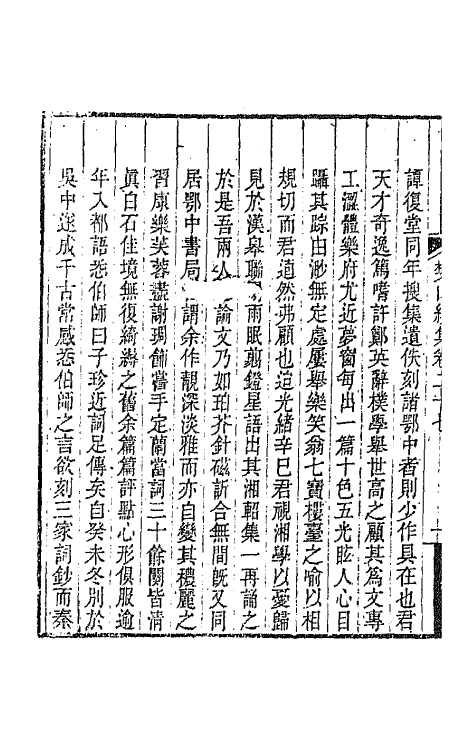 譚復堂同年搜集遺佚刻諸鄂中者則少作具在也君
天才奇逸篤嗜許鄭英辭樸學舉世高之顧其爲文專
工溫體樂府尤近夢窗每出一篇十色五光眩人心目
躡其踪由渺無定處屢舉樂笑翁七寶樓臺之喻以相
規切而君逌然弗顧也迨光緒辛巳君視湘學以憂歸
見於漢皋聯 雨眠翦鐙星語出其湘軺集一再誦之
於是吾兩 論文乃如珀芥針磁訢合無間旣又同
居鄂中書局 謂余作靚深淡雅而亦自變其穠麗之
習康樂芙蓉盡謝琱飾嘗手定蘭當詞三十餘闋皆清
眞白石佳境無復綺縟之舊余篇篇評點心形俱服逾
年入都語悉伯師曰子珍近詞足傳矣自癸未冬別於
吳中遂成千古常感悉伯師之言欲刻三家詞鈔而秦